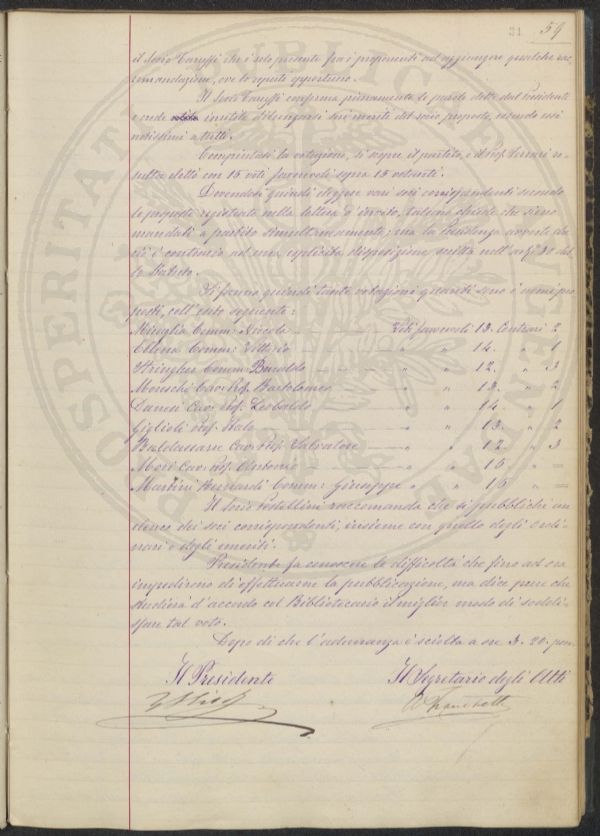 31 59
il Socio Taruffi che è solo presente fra i proponenti ad aggiungere qualche rac
comandazione, ove lo reputi opportuno.
Il Socio Taruffi conferma pienamente le parole dette dal Presidente
e crede inutile dilungarsi sui meriti del socio proposto, essendo essi
notissimi a tutti.
Compiutasi la votazione, si scopre il partito, e il Prof. Ferrari re-
sulta eletto con 15 voti favorevoli sopra 15 votanti.
Dovendosi quindi eleggere vari soci corrispondenti secondo
le proposte registrate nella lettera d'invito, taluno chiede che sieno
mandati a partito simultaneamente; ma la Presidenza avverte che
ciò è contrario ad una esplicita disposizione scritta nell'art. 20 del
lo Statuto.
Si fanno quindi tante votazioni quanti sono i nomi pro
posti, coll'esito seguente:
Miraglia Comm: Nicola Voti favorevoli 13. Contrari 2
Ellena Comm: Vittorio " " 14. " 1
Stringher Comm: Bonaldo " " 12. " 3
Moreschi Cav: Prof. Bartolomeo " " 13. " 2
Danesi Cav: Prof. Leobaldo " " 14. " 1
Giglioli Prof. Italo " " 13. " 2
Baldassarre Cav: Prof. Salvatore " " 12. " 3
Mori Cav: Prof. Antonio " " 15. " =
Martini Bernardi Comm: Giuseppe " " 15 " =
Il socio Pestellini raccomanda che si pubblichi un
elenco dei soci corrispondenti, insieme con quello degli ordi-
nari e degli emeriti.
Presidente fa conoscere le difficoltà che fino ad ora
impedirono di effettuarne la pubblicazione, ma dice pure che
studierà d'accordo col Bibliotecario il miglior modo di soddi-
sfare tal voto.
Dopo di che l'adunanza è sciolta a ore 3. 20. pom.
Il Presidente Il Segretario degli Atti
A Franchetti
PROSPERITATI PUBLICAE AUGENDAE